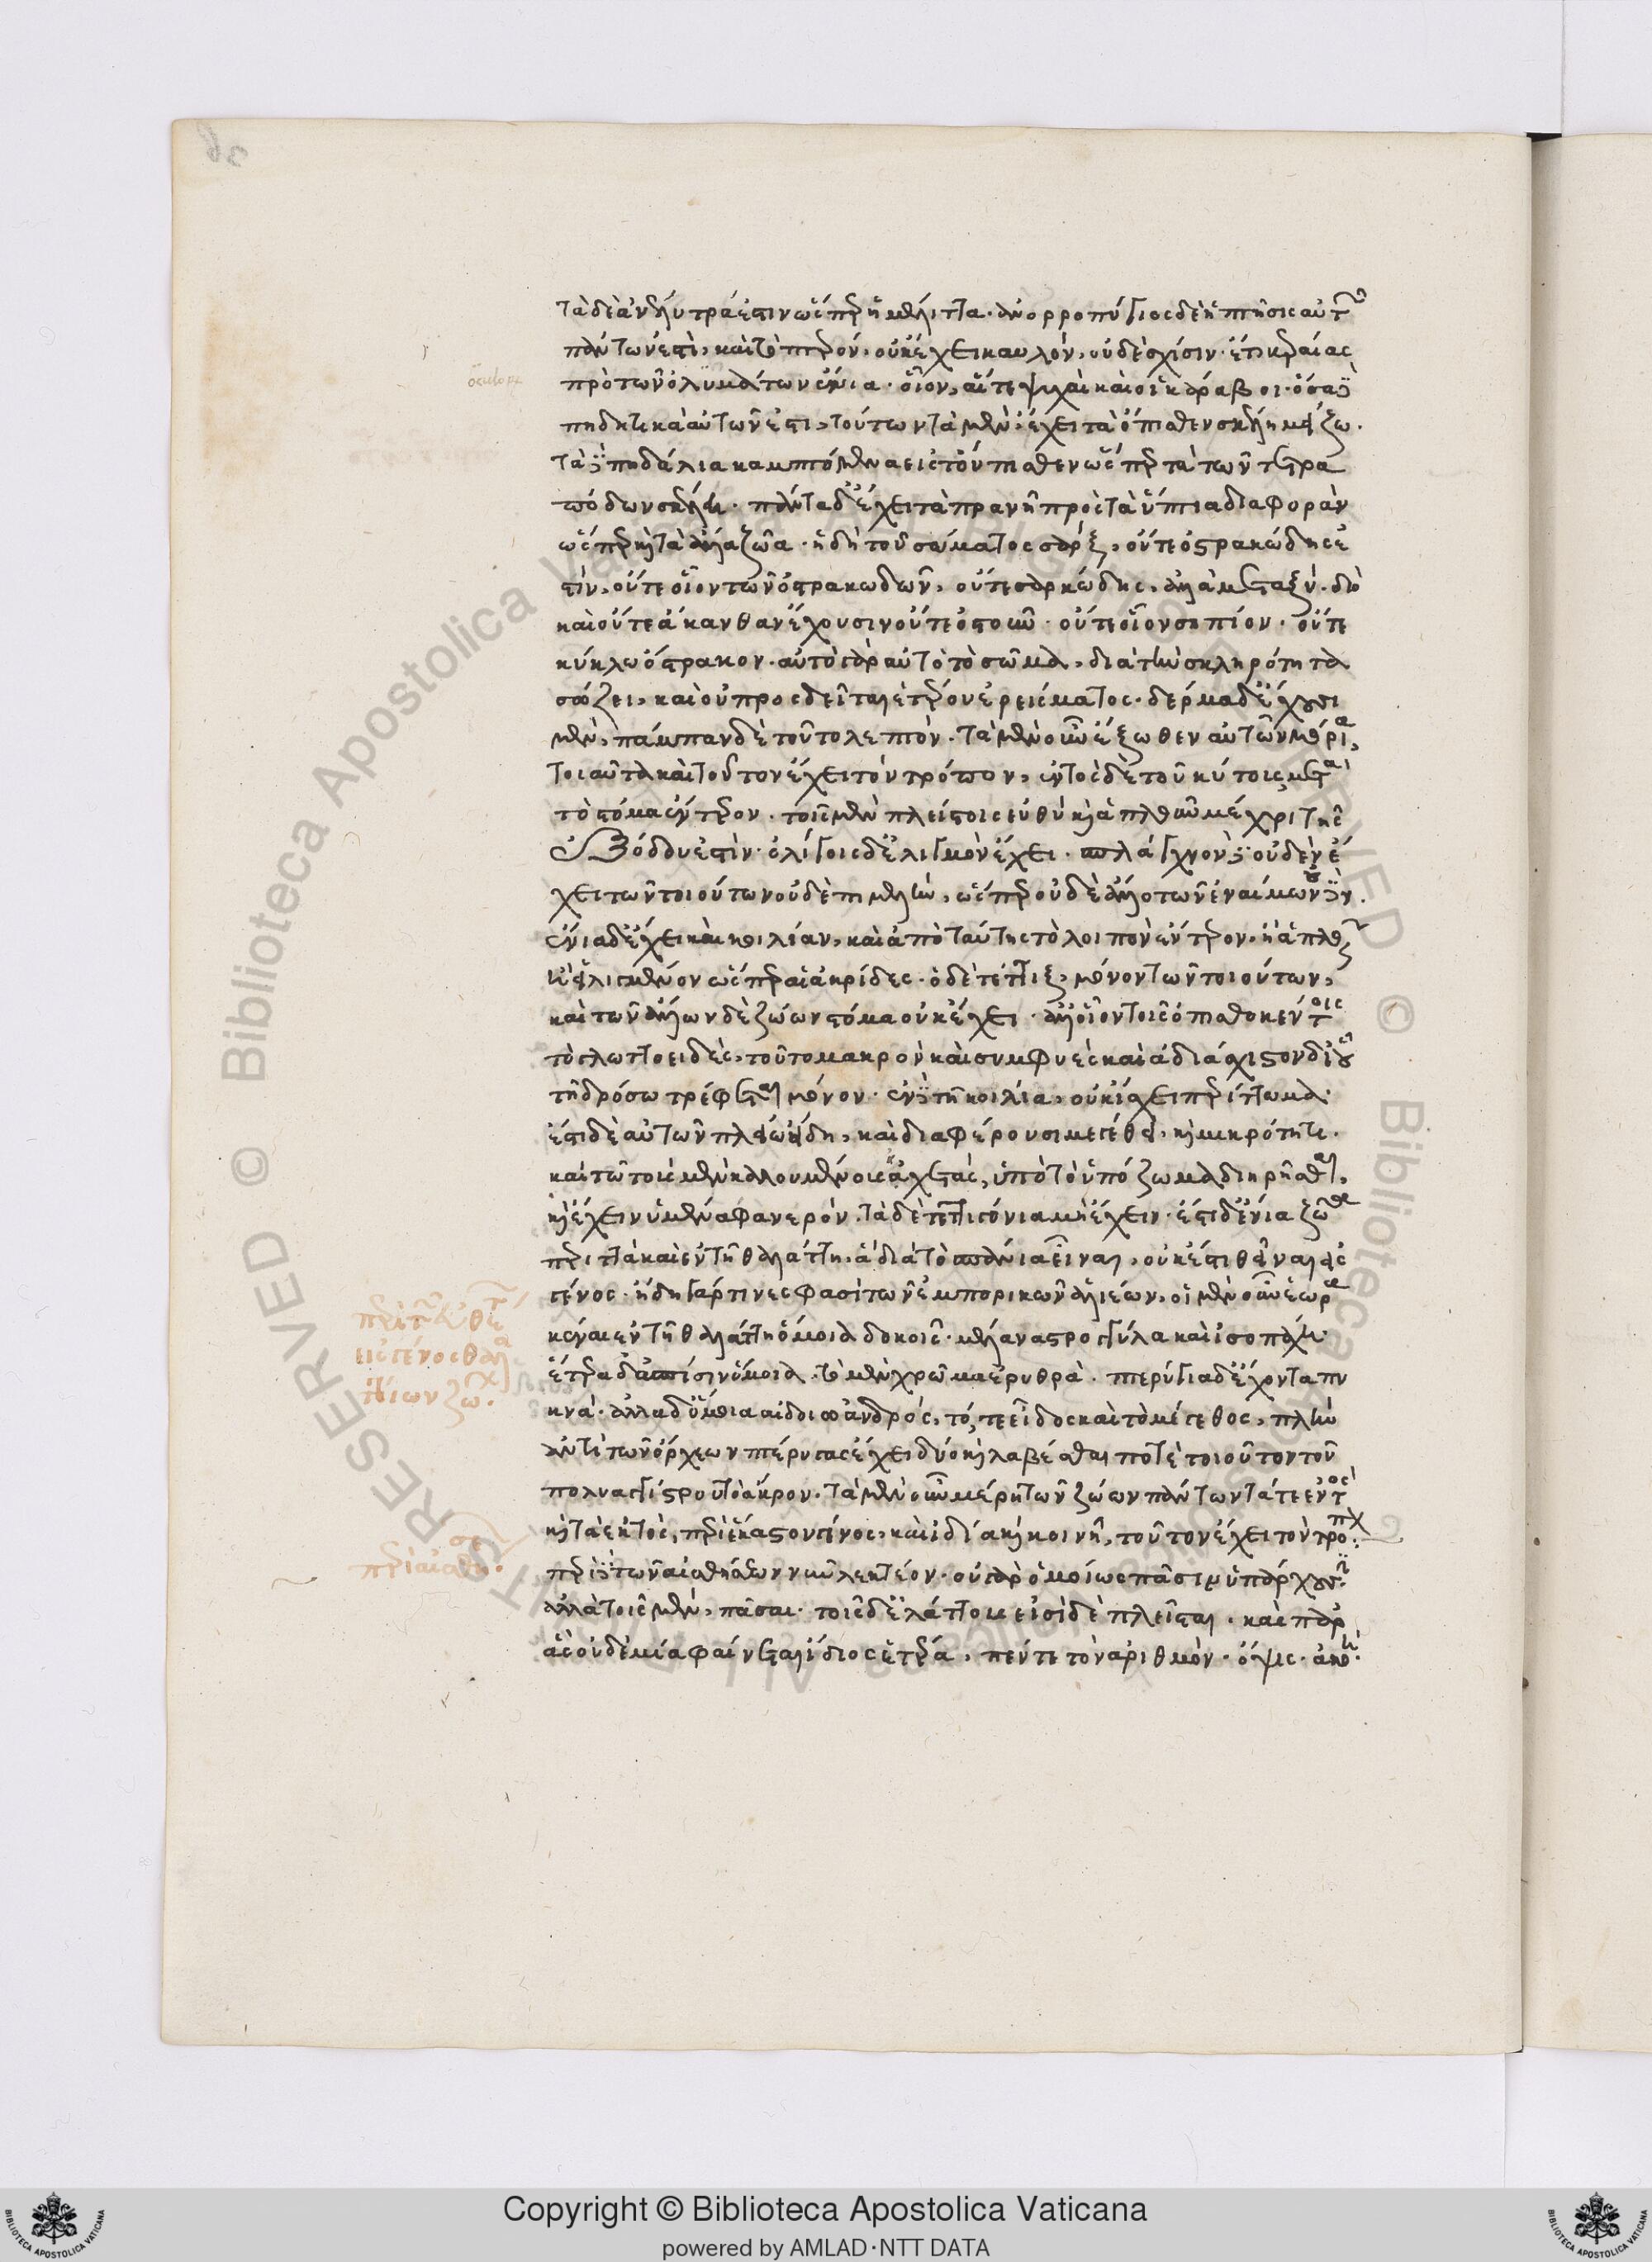 τὰ δὲ ἀνέλυτρά ἐστιν ὥσπερ ἡ μέλιττα· ἀνορροπύγιος δὲ ἡ πτῆσις αὐτῶν
πάντων ἐστί, καὶ τὸ πτερὸν οὐκ ἔχει καυλόν, οὐδὲ σχίσιν. ἔτι κεραίας
πρὸ τῶν ὀμμάτων ἔνια· οἷον, αἵ τε ψυχαὶ καὶ οἱ κάραβοι· ὅσα δὲ
πηδητικὰ αὐτῶν ἐστι, τούτων τὰ μὲν ἔχει τὰ ὄπισθεν σκέλη μείζω.
τὰ δὲ πηδάλια καμπτόμενα εἰς τοὔπισθεν ὥσπερ τὰ τῶν τετρα
πόδων σκέλη· πάντα δ' ἔχει τὰ πρανῆ πρὸς τὰ ὕπτια διαφορὰν
ὥσπερ καὶ τὰ ἄλλα ζῶα· ἡ δὴ τοῦ σώματος σάρξ, οὔτε ὀστρακώδης ἐ
στίν, οὔτε οἷον τῶν ὀστρακωδῶν, οὔτε σαρκώδης, ἀλλὰ μεταξύ· διὸ
καὶ οὔτε ἄκανθαν ἔχουσιν οὔτε ὀστοῦν· οὔτε οἷον σηπίον· οὔτε
κύκλω ὄστρακον· αὐτὸ γὰρ αὑτὸ τὸ σῶμα, διὰ τὴν σκληρότητα
σώζει, καὶ οὐ προσδεῖται ἑτέρου ἐρείσματος· δέρμα δ' ἔχουσι
μέν, πάμπαν δὲ τοῦτο λεπτόν· τὰ μὲν οὖν ἔξωθεν αὐτῶν μόρια,
τοιαῦτα καὶ τοῦτον ἔχει τὸν τρόπον, ἐντὸς δὲ τοῦ κύτους μετὰ
τὸ στόμα ἔντερον· τοῖς μὲν πλείστοις εὐθὺ καὶ ἁπλοῦν μέχρι τῆς
ἐξόδου ἐστίν· ὀλίγοις δ' ἑλιγμὸν ἔχει· σπλάγχνον δὲ οὐδὲν ἔ
χει τῶν τοιούτων οὐδὲ πιμελήν, ὥσπερ οὐδὲ ἄλλο τῶν ἀναίμων οὐδέν.
ἔνια δ' ἔχει καὶ κοιλίαν, καὶ ἀπὸ ταύτης τὸ λοιπὸν ἔντερον, ἢ ἁπλοῦν
ἢ εἱλιγμένον ὥσπερ αἱ ἀκρίδες· ὁ δὲ τέττιξ, μόνον τῶν τοιούτων,
καὶ τῶν ἄλλων δὲ ζώων στόμα οὐκ ἔχει· ἀλλ' οἷον τοῖς ὀπισθοκέντροις
τὸ γλωττοειδές, τοῦτο μακρὸν καὶ συμφυὲς καὶ ἀδιάσχιστον δι' οὗ
τῆ δρόσω τρέφεται μόνον· ἐν δὲ τῆ κοιλία, οὐκ ἴσχει περίττωμα·
ἔστι δὲ αὐτῶν πλείω εἴδη, καὶ διαφέρουσι μεγέθει καὶ μικρότητι·
καὶ τῶ τοὺς μὲν καλουμένους ἀχέτας, ὑπὸ τὸ ὑπόζωμα διηρῆσθαι,
καὶ ἔχειν ὑμένα φανερόν· τὰ δὲ τεττιγόνια μὴ ἔχειν· ἔστι δ' ἔνια ζῶα
περιττὰ καὶ ἐν τῆ θαλάττη, ἃ διὰ τὸ σπάνια εἶναι, οὐκ ἔστι θεῖναι εἰς
γένος· ἤδη γάρ τινες φασὶ τῶν ἐμπορικῶν ἁλιέων, οἱ μὲν οὖν ἑωρα
κέναι ἐν τῆ θαλάττη ὅμοια δοκοῖς· μέλανα στρογγύλα καὶ ἰσοπαχῆ·
ἕτερα δὲ ἀσπίσιν ὅμοια· τὸ μὲν χρῶμα ἐρυθρά· πτερύγια δ' ἔχοντα πυ
κνά· ἄλλα δ' ὅμοια αἰδοίω ἀνδρός, τό, τε εἶδος καὶ τὸ μέγεθος, πλὴν
ἀντὶ τῶν ὄρχεων πτέρυγας ἔχει δύο καὶ λαβέσθαι ποτὲ τοιοῦτον τοῦ
πολυαγκίστρου τὸ ἄκρον· τὰ μὲν οὖν μέρη τῶν ζώων πάντων τά τε ἐντὸς
καὶ τὰ ἐκτός, περὶ ἕκαστον γένος, καὶ ἰδία καὶ κοινῆ, τοῦτον ἔχει τὸν τρόπον·
περὶ δὲ τῶν αἰσθήσεων νῦν λεκτέον· οὐ γὰρ ὁμοίως πᾶσιν ὑπάρχουσιν·
ἀλλὰ τοῖς μέν, πᾶσαι· τοῖς δ' ἐλάττους εἰσὶ δὲ πλεῖσται· καὶ παρ'
ἃς οὐδεμία φαίνεται ἴδιος ἑτέρα, πέντε τὸν ἀριθμόν· ὄψις· ἀκοή·